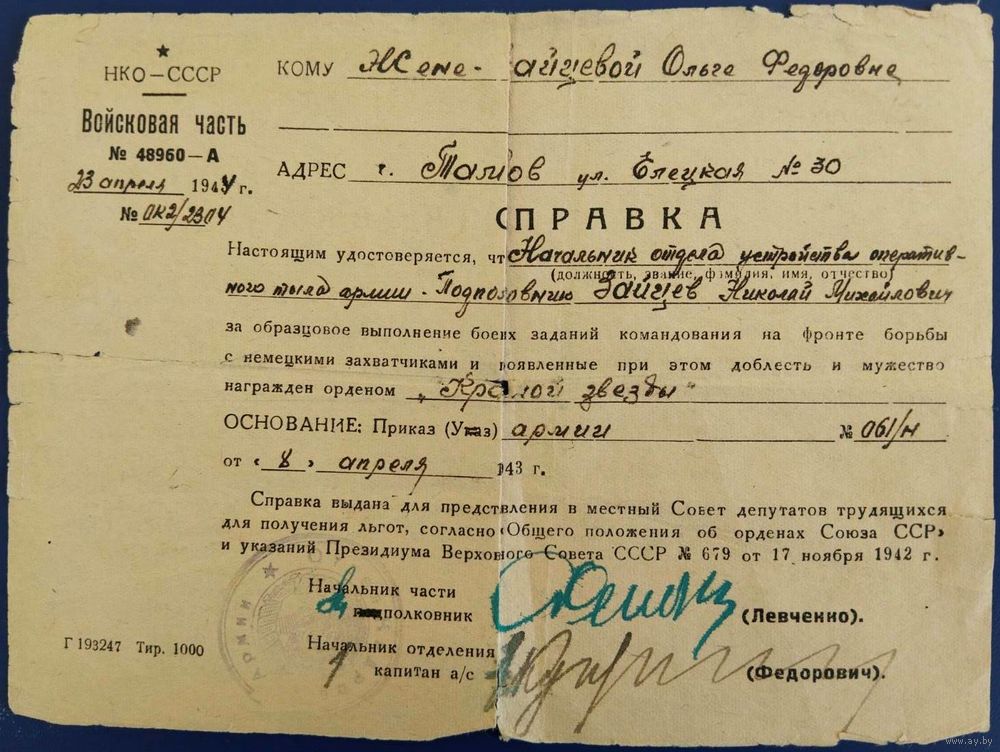 НКО — СССР
Войсковая часть
№ 48960 — А
23 апреля 1944 г.
№ ОК2/2304
КОМУ Жене - айцевой Ольге Федоровне
АДРЕС г. Тамбов ул. Елецкая № 30
СПРАВКА
Настоящим удостоверяется, чт Начальник отдела устройства оператив-
(должность, звание, фамилия, имя, отчество)
ного тыла армии - Подполковник Зайцев Николай Михайлович
за образцовое выполнение боевх заданий командования на фронте борьбы
с немецкими захватчиками и роявленные при этом доблесть и мужество
награжден орденом „Красной звезды"
ОСНОВАНИЕ: Приказ (Указ) армии № 061/н
от «8» апреля 1943 г.
Справка выдана для представления в местный Совет депутатов трудящихся
для получения льгот, согласно «Общего положения об орденах Союза ССР»
и указаний Президиума Верховного Совета СССР № 679 от 17 ноября 1942 г.
Начальник части
подполковник (Левченко).
Г 193247 Тир. 1000
Начальник отделения
капитан а/с (Федорович).
АРМИИ
www.ay.by